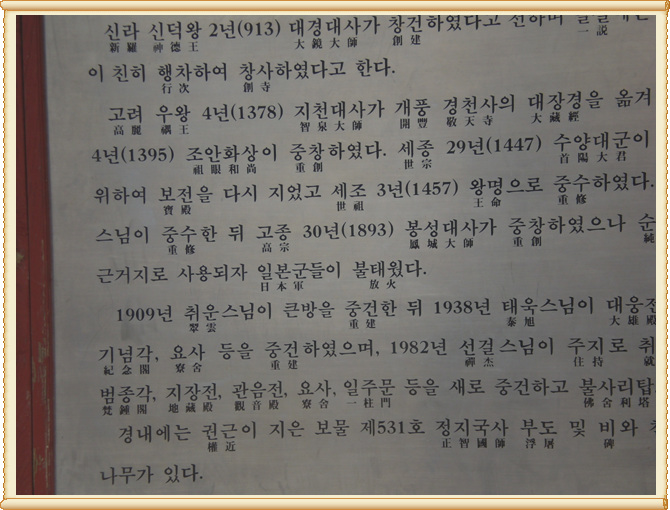 신라 신덕왕 2년(913) 대경대사가 창건하였다고 전하며
新羅 神德王 大鏡大師 創建 一説
이 친히 행차하여 창사하였다고 한다.
行次 創寺
고려 우왕 4년(1378) 지천대사가 개풍 경천사의 대장경을 옮겨
高麗 禑王 智泉大師 開豐 敬天寺 大藏經
4년(1395) 조안화상이 중창하였다. 세종 29년(1447) 수양대군이
祖眼和尚 重創 世宗 首陽大君
위하여 보전을 다시 지었고 세조 3년(1457) 왕명으로 중수하였다.
寶殿 世祖 王命 重修
스님이 중수한 뒤 고종 30년(1893) 봉성대사가 중창하였으나 순
重修 高宗 鳳城大師 重創 純
근거지로 사용되자 일본군들이 불태웠다.
日本軍 放火
1909년 취운스님이 큰방을 중건한 뒤 1938년 태욱스님이 대웅전
翠雲 重建 泰旭 大雄殿
기념각, 요사 등을 중건하였으며, 1982년 선걸스님이 주지로 취
紀念閣 寮舍 重建 禪杰 住持 就
범종각, 지장전, 관음전, 요사, 일주문 등을 새로 중건하고 불사리탑
梵鍾閣 地藏殿 觀音殿 寮舍 一柱門 佛舍利塔
경내에는 권근이 지은 보물 제531호 정지국사 부도 및 비와
權近 正智國師 浮屠 碑
나무가 있다.